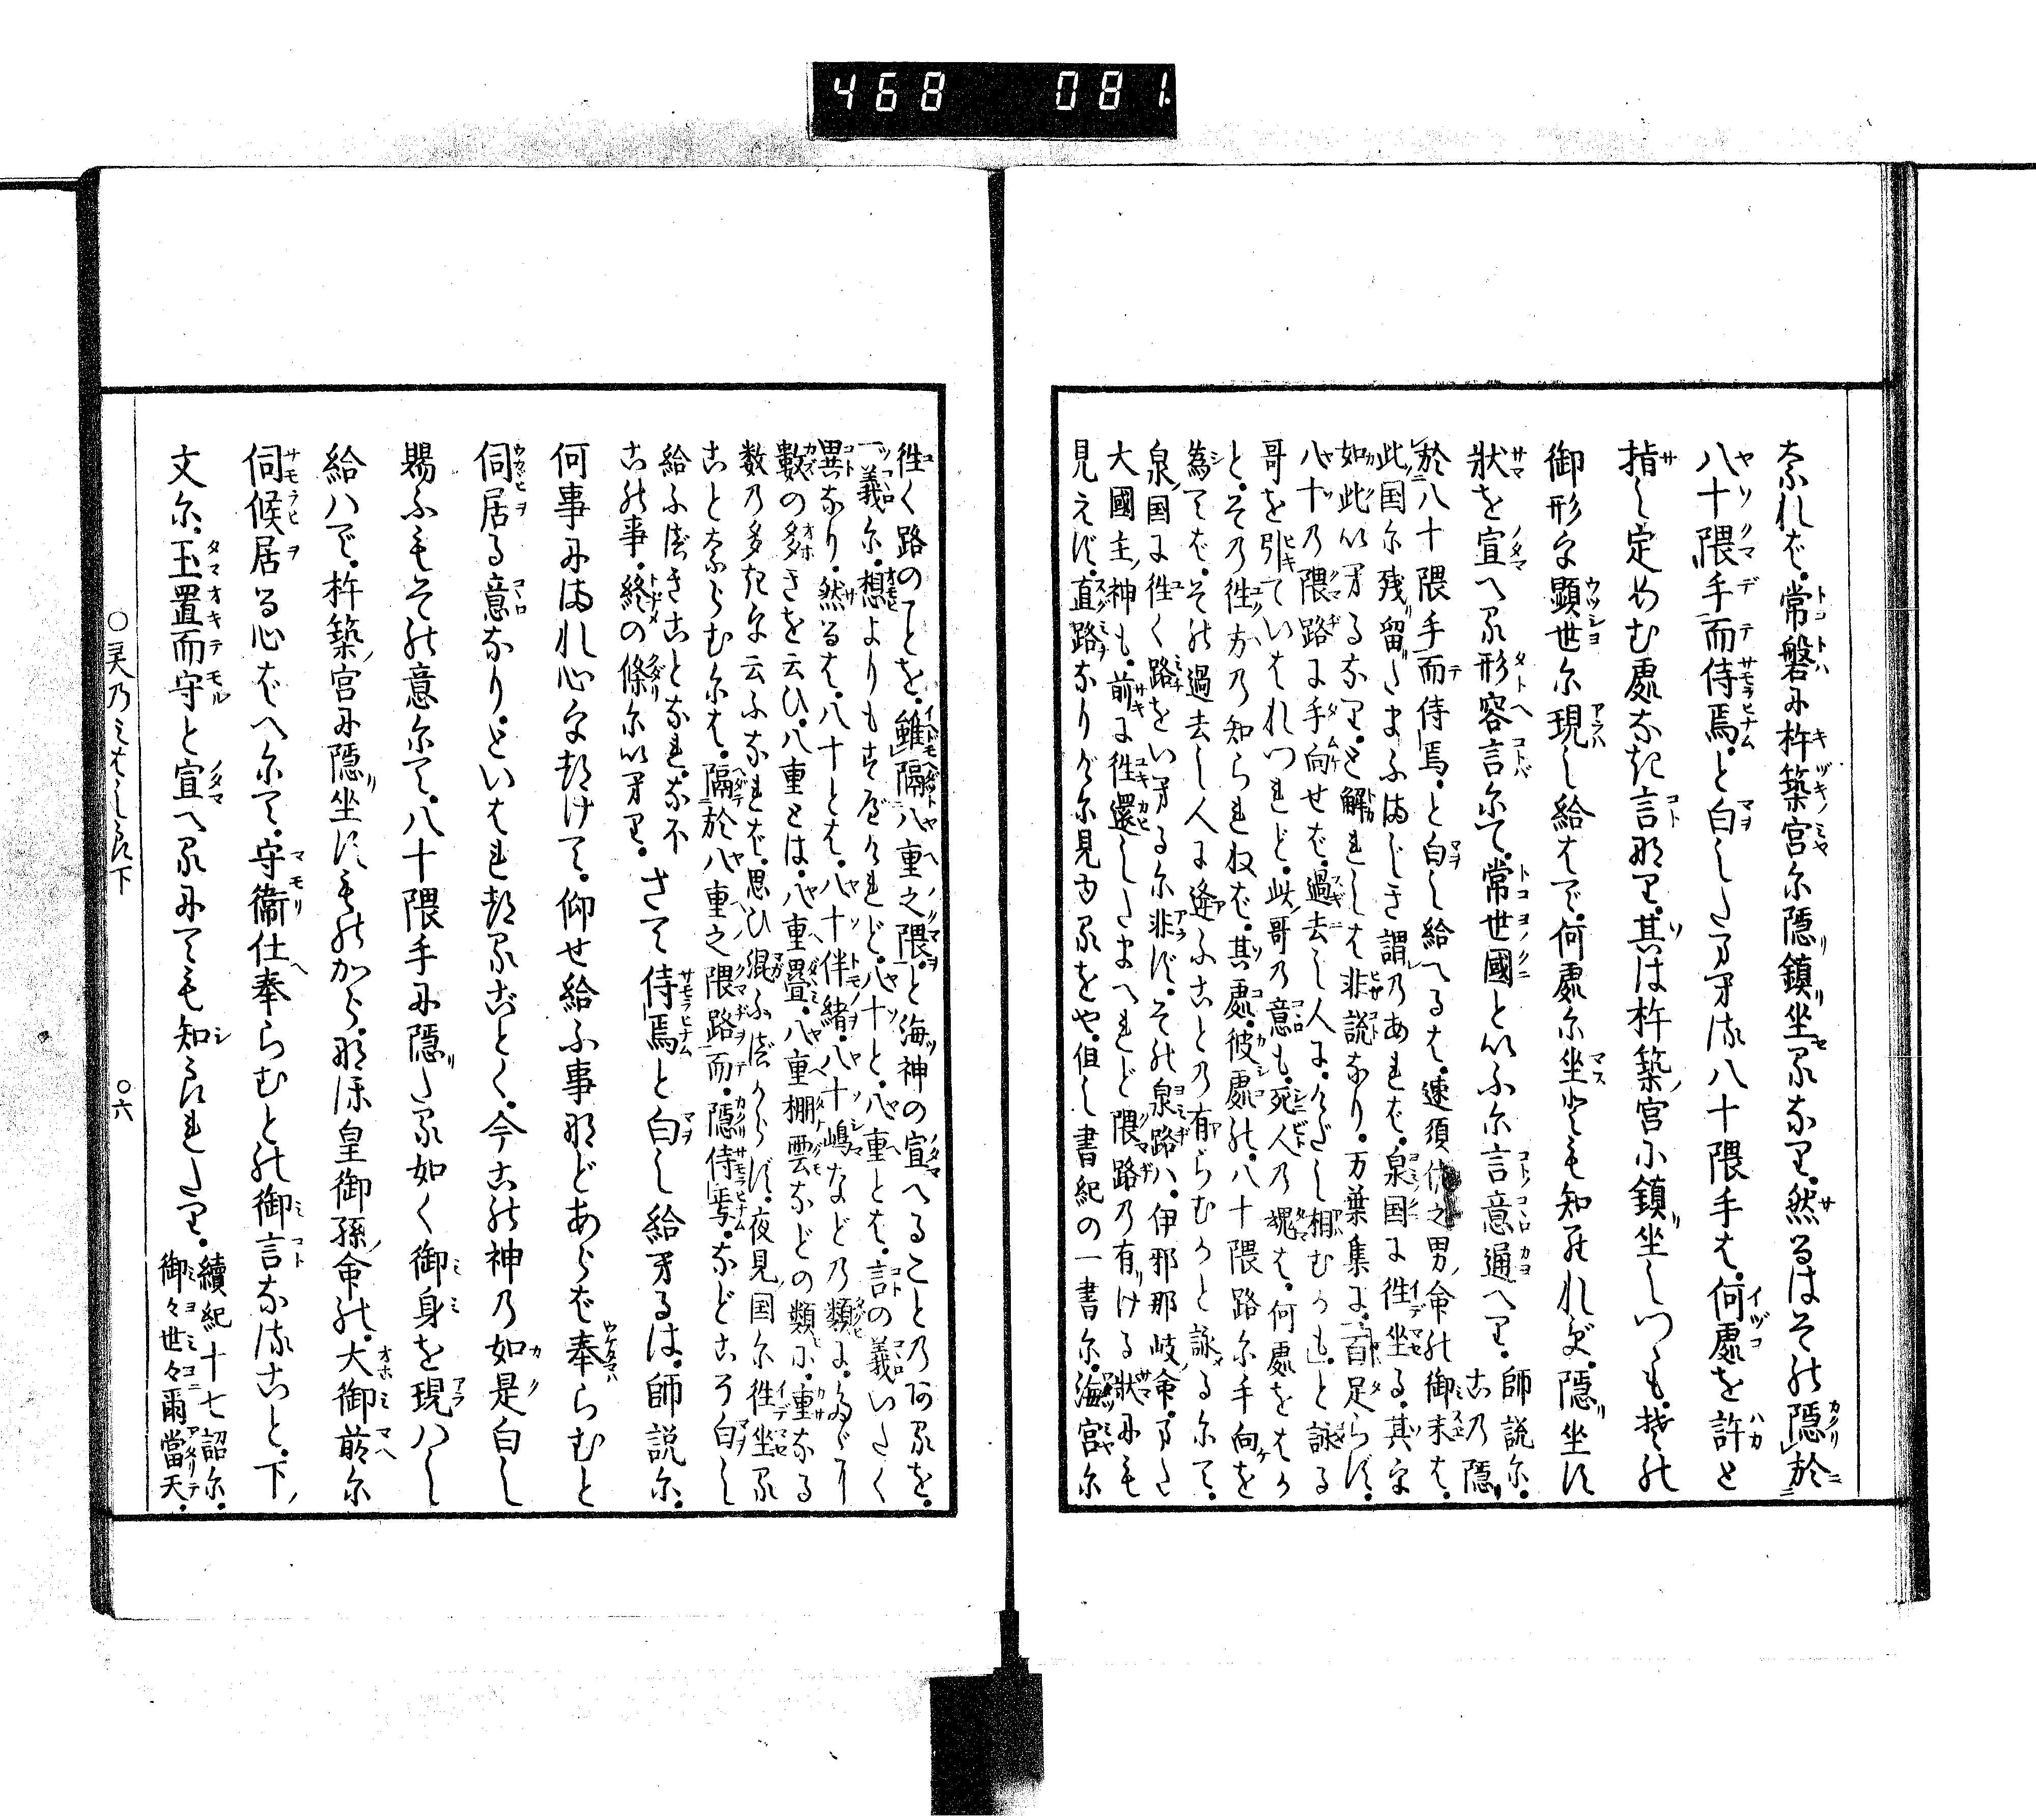 468 081.
奈れど。常磐に杵築宮尓隠鎮坐るなり。然るはその隠於
八十隈手而侍焉。と白したまへる八十隈手は。何處を許と
指し定めむ處なき言なり。其は杵築宮に鎮坐しつゝも。その
御形を顕世尓現し給はで。何處尓坐とも知られず。隠坐す
狀を宣へる形容言尓て。常世國といふ尓言意通へり。
師説尓。古乃隠
於八十隈手而侍焉。と白し給へるは。速須佐之男命の御末は。
此国尓残留りたまふまじき謂乃あれば。泉国に徃坐る。其を
如此いへるなり。と解れしは非説なり。万葉集に。百足らず。
八十乃隈路に手向せば。過去し人に。けだし相むかも。と詠る
哥を引ていはれつれど。此哥乃意も。死人乃魂は。何處をはか
と。その徃方乃知られねば。其處。彼處の。八十隈路尓手向を
為てば。その過去し人に逢ふことの有らむかと詠るにて。
泉国に徃く路をいへる尓非ず。その泉路ハ。伊邪那岐命。また
大國主神も。前に徃還したまへれど隈路乃有ける狀にも
見えず。直路なりげ尓見ゆるをや。但し書紀の一書尓。海宮尓
徃く路のことを。雖隔八重之隈。と海神の宣へること乃ある を。
一義尓。想よりもすべけれど。八十と。八重とは。言の義いたく
異なり。然るは。八十とは。八十伴緒。八十嶋などの類に。
數の多きを云ひ。八重とは。八重疊。八重棚雲などの類に。重なる
数乃多きを云ふなれば。思ひ混ふべからず。夜見国尓徃坐る
ことならむには。隔於八重之隈路而。隠侍焉。などこそ白し
給ふべきことなれ。な不
古の事。終の條尓いへり。さて侍焉と白し給へるは。師説尓。
何事にまれ心を却けて。仰せ給ふ事などあらば奉らむと
伺居る意なり。といはれたるごとく。今この神乃如是白し
賜ふもその意尓て。八十隈手に隠りたる如く御身を現ハし
給ハで。杵築宮に隠坐すものから。なほ皇御孫命の。大御前尓
伺候居る心ばへ尓て。守衞仕奉らむとの御言なること。下ノ
文尓。玉置而守と宣へるにても知られたり。
續紀十七詔尓。
御々世々爾當天。
○灵乃みはしら下 ○六